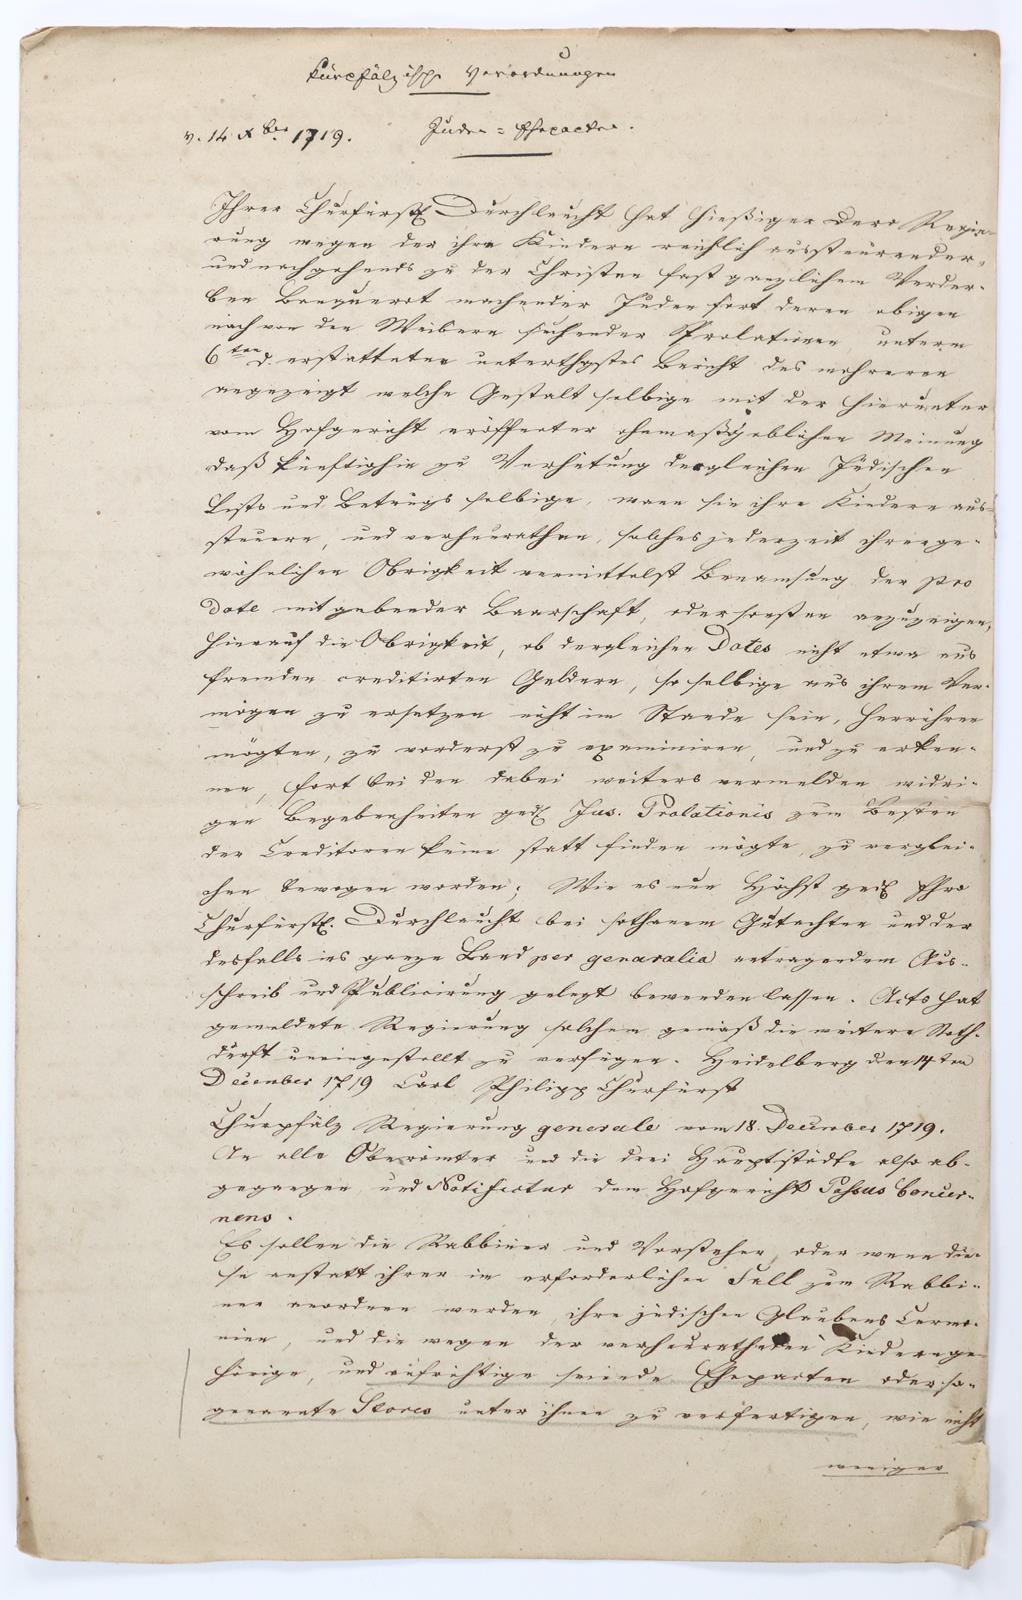 Kurpfälzische Verordnungen
v. 14 Xber 1719. Juden = Ehepacten.
Ihrer Churfürstl Durchlaucht hat hießiger Dero Regie-
rung wegen der ihre Kindern reichlich aussteürender,
und nachgehends zu der Christen fast gänzlichem Verder-
ben Banquerot machender Juden fort deren obigen
nach von den Weibern suchender Prolationen unterm
6ten d. erstatteten unterthgstes Bericht des mehreren
angezeigt welche Gestalt selbige mit der hierunter
vom Hofgericht eröffneter ohnmaßgeblichen Meinung
daß künftighin zu Verhütung dergleichen Jüdischen
Lists und Betrugs selbige, wann sie ihre Kindern aus-
steuern, und verheurathen, solches jederzeit ihrer ge-
wöhnlichen Obrigkeit vermittelst Benamsung der pro
Dote mitgebender Baarschaft, oder sonsten anzuzeigen,
hierauf die Obrigkeit, ob dergleichen Dotes nicht etwa aus
fremden creditirten Geldern, so selbige aus ihrem Ver-
mögen zu ersetzen nicht im Stande sein, herrühren
mögten, zu vorderst zu examiniren, und zu erken-
nen, fort bei den dabei weiters vermelden widri-
gen Begebenheiten gedl Jus. Prolationis zum Besten
der Creditoren keine statt finden mögte, zu verglei-
chen bewogen worden; Wie es nun Höchst gedl Ihro
Churfürstl. Durchlaucht bei sothanem Gutachten und der
desfalls ins ganze Land per genaralia antragendem Aus-
schreib und Publicirung gelegt bewenden lassen. Acts hat
gemeldete Regierung solchem gemäß die weitere Noth-
durft uneingestellt zu verfügen. Heidelberg den 14ten
December 1719 Carl Philipp Churfürst
Churpfälz Regierung generale vom 18. December 1719.
An alle Oberämter und die drei Hauptstädte also ab-
gegangen und Notificetur dem Hofgericht Passus Concer-
nens.
Es sollen die Rabbiner und Vorsteher, oder wenn die-
se anstatt ihrer im erforderlichen Fall zum Rabbi-
ner anordnen werden, ihre jüdischen Glaubens Cermo-
nien, und die wegen der verheuratheten Kindern ge-
hörige, und aufrichtige seiende Ehepacten oder so-
genannte Stores unter ihnen zu verfertigen, wie nicht
weniger